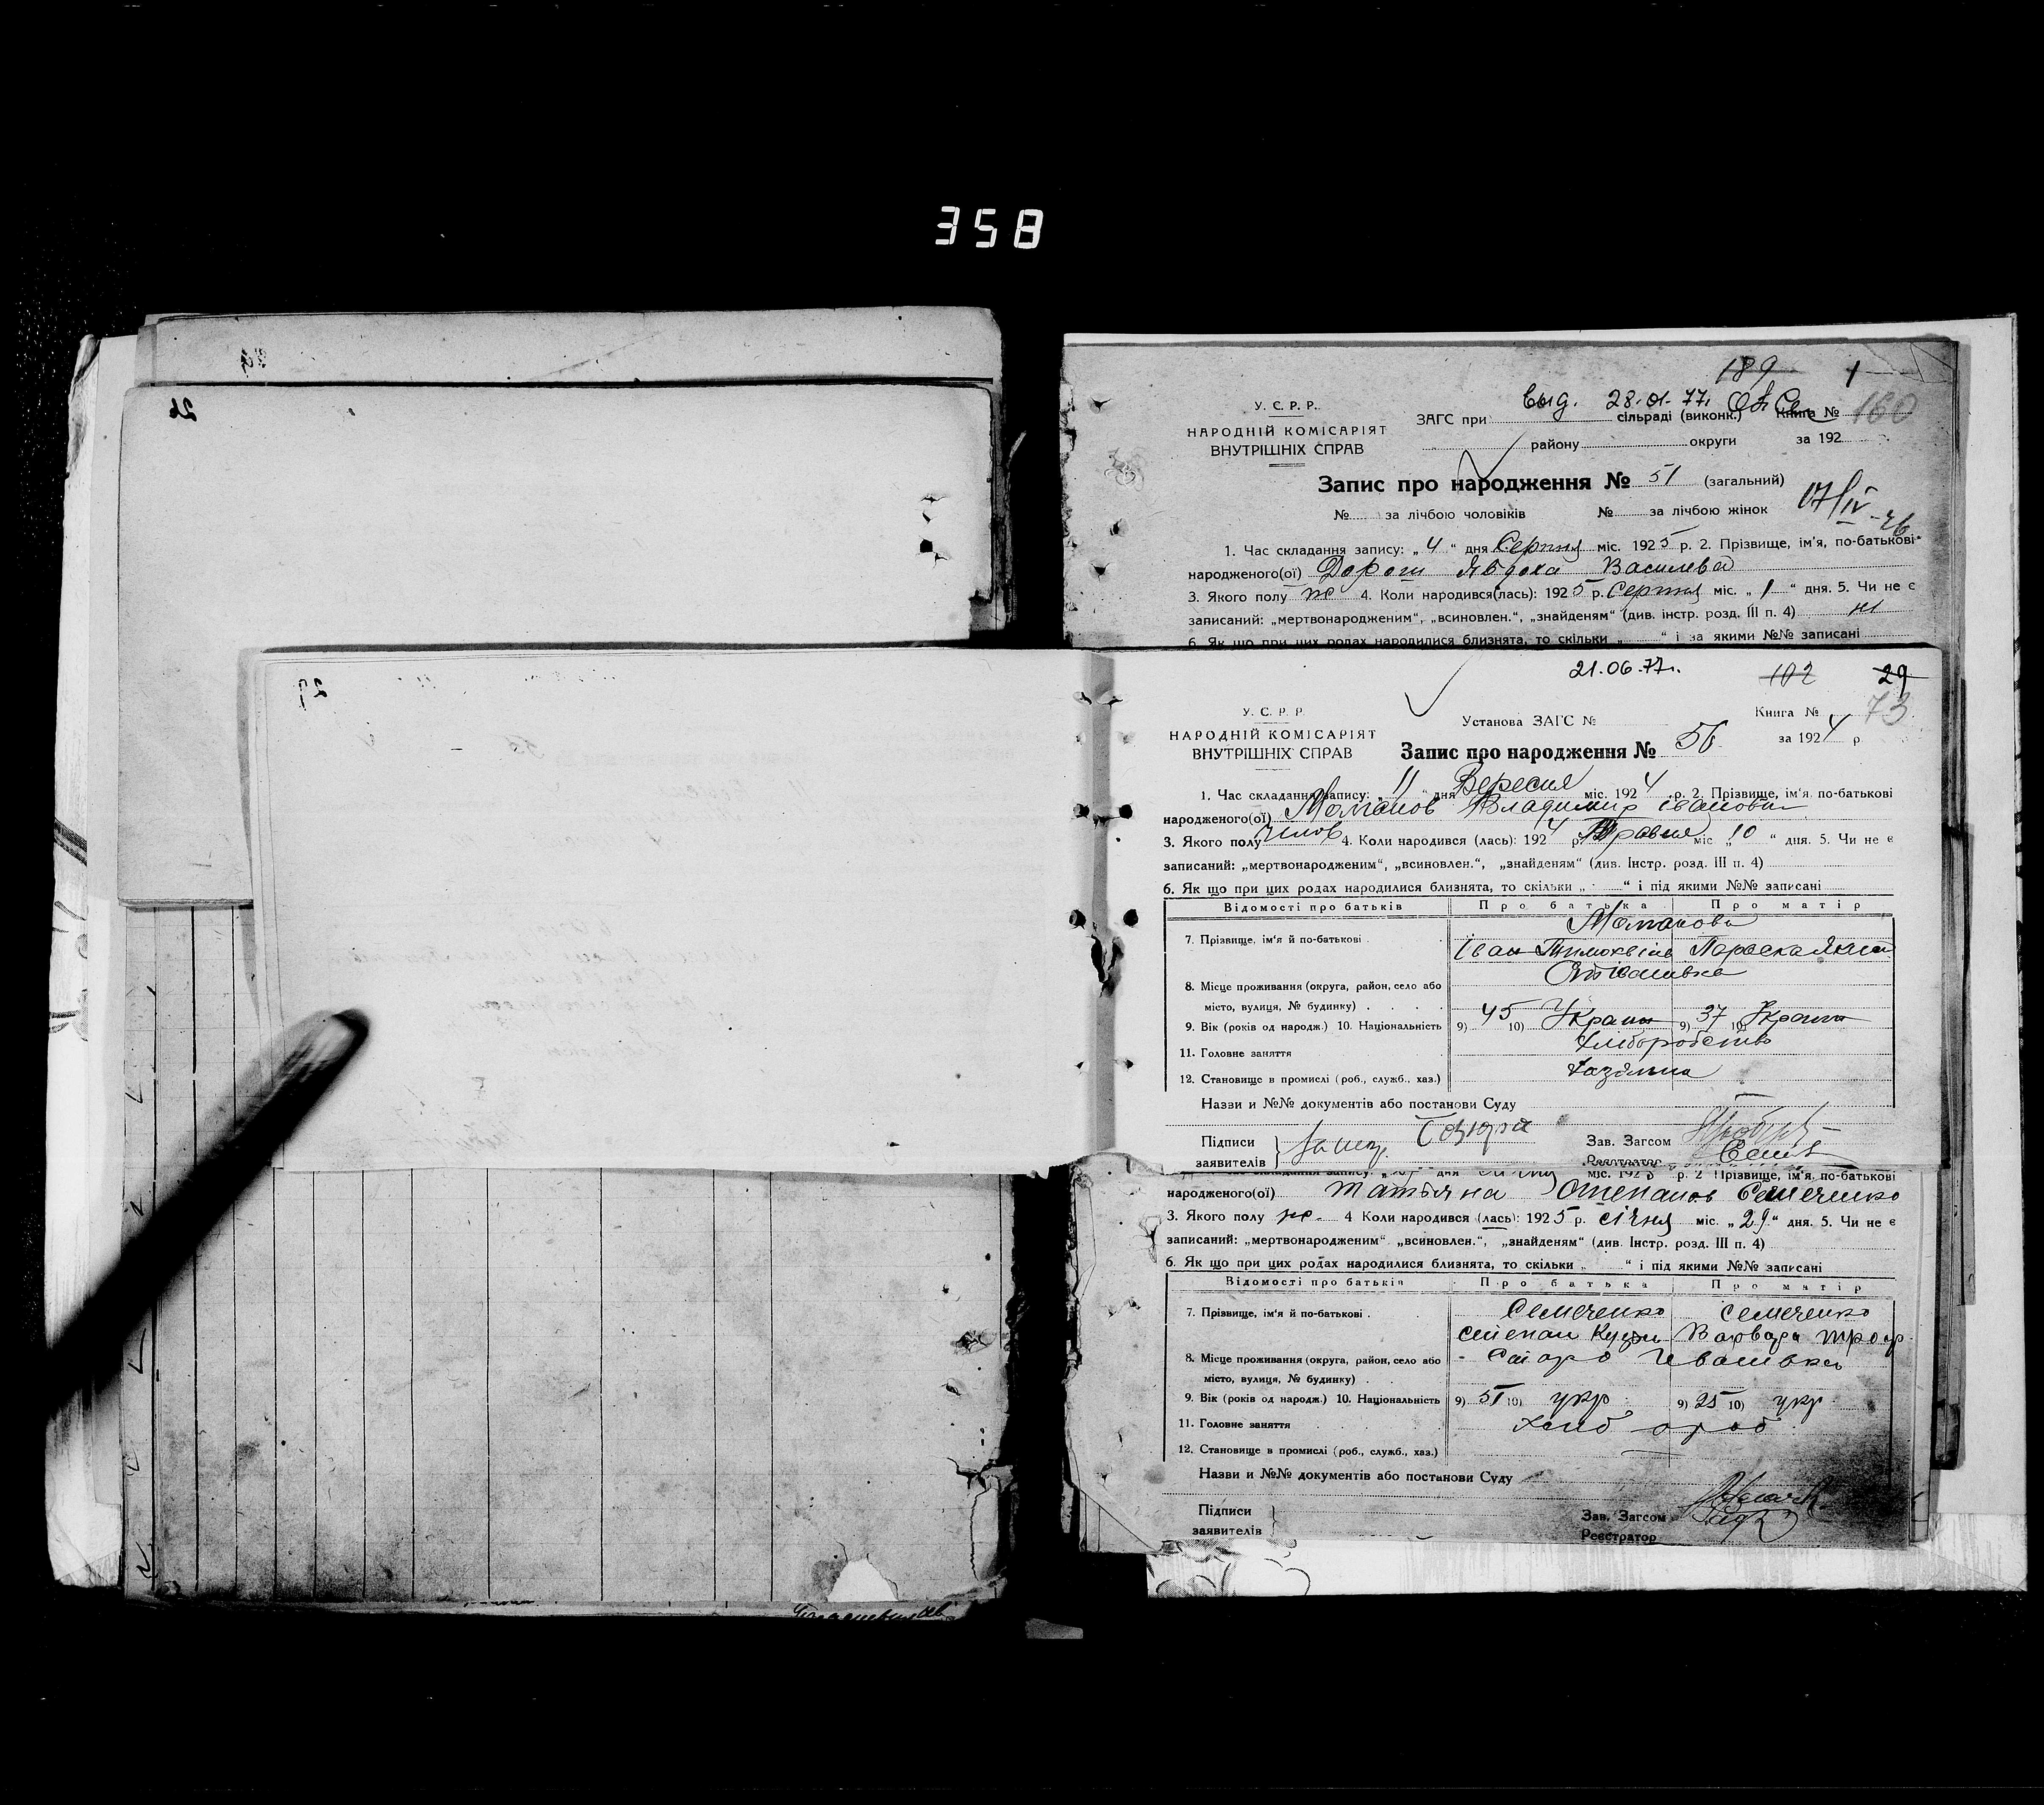 358
26
29
189 1
выд. 28.01.77.
У. С. Р. Р.
НАРОДНІЙ КОМІСАРІЯТ
ВНУТРІШНІХ СПРАВ
ЗАГС при сільраді (виконк.) Книга № 160
району округи за 192
Запис про народження № 51 (загальний)
№ за лічбою чоловіків № за лічбою жінок
17/IV-76
1. Час складання запису: „ 4 “ дня Серпня міс. 1925 р. 2. Прізвище, ім'я, по-батькові
народженого(ої) Дорош Явдоха Василева
3. Якого полу ж 4. Коли народився(лась): 1925 р. Серпня міс. „ 1 “ дня. 5. Чи не є
записаний: „мертвонародженим“, „всиновлен.“, „знайденям“ (див. інстр. розд. III п. 4) ні
6. Як що при цих родах народилися близнята, то скільки „ “ і за якими №№ записані
21.06.77. 102 29
У. С. Р. Р.
НАРОДНІЙ КОМІСАРІЯТ
ВНУТРІШНІХ СПРАВ
Установа ЗАГС № Книга № 73
Запис про народження № 56 за 1924 р.
1. Час складання запису: „ 11 “ дня Вересня міс. 1924 р. 2. Прізвище, ім'я, по-батькові
народженого(ої) Владимир Іванович
3. Якого полу челов 4. Коли народився (лась): 1924 р. Травня міс „ 10 “ дня. 5. Чи не є
записаний: „мертвонародженим“, „всиновлен.“, „знайденям“ (див. Інстр. розд. III п. 4)
6. Як що при цих родах народилися близнята, то скільки „ “ і під якими №№ записані
Відомості про батьків Про батька Про матір
7. Прізвище, ім'я й по-батькові
Іван Параска
8. Місце проживання (округа, район, село або
місто, вулиця, № будинку)
9. Вік (років од народж.) 10. Національність 9) 45 10) Украин 9) 37 10) Украин
11. Головне заняття Хліборобство
12. Становище в промислі (роб., служб., хаз.)
Назви и №№ документів або постанови Суду
Підписи
заявителів
Зав. Загсом
Реєстратор
міс. 1925 р. 2 Прізвище, ім'я, по-батькові
народженого(ої) Татьяна Степанов Семеченко
3. Якого полу ж. 4 Коли народився (лась): 1925 р. січня міс. „ 29 “ дня. 5. Чи не є
записаний: „мертвонародженим“ „всиновлен.“, „знайденям“ (див. Інстр. розд. III п. 4)
6. Як що при цих родах народилися близнята, то скільки „ “ і під якими №№ записані
Відомості про батьків Про батька Про матір
7. Прізвище, ім'я й по-батькові Семеченко Семеченко
Степан Варвара
8. Місце проживання (округа, район, село або
місто, вулиця, № будинку)
9. Вік (років од народж.) 10. Національність 9) 51 10) укр 9) 25 10) укр
11. Головне заняття Хлібороб
12. Становище в промислі (роб., служб., хаз.)
Назви и №№ документів або постанови Суду
Підписи
заявителів
Зав. Загсом
Реєстратор